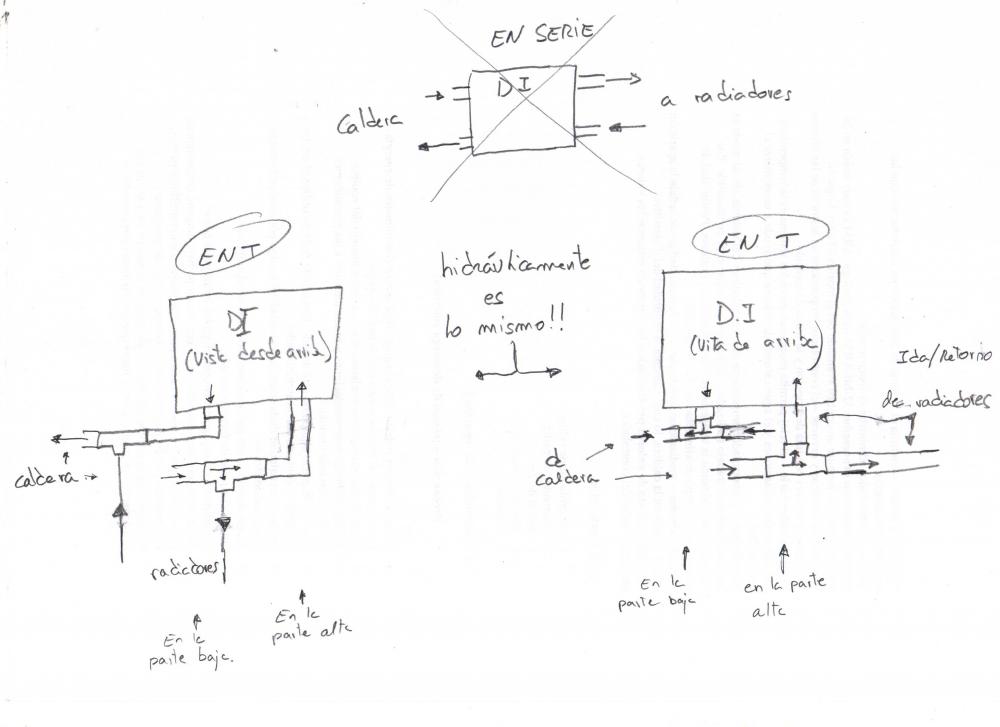 EN SERIE
DI
Caldera
a radiadores
EN T
DI
(Viste desde arribe)
caldera
radiadores
En la
parte baja.
En la
parte alta
hidráulicamente
es
lo mismo!!
EN T
D.I
(Vita de arribe)
Ida/Retorno
de radiadores
de
caldera
En la
parte baja
en la parte
alta